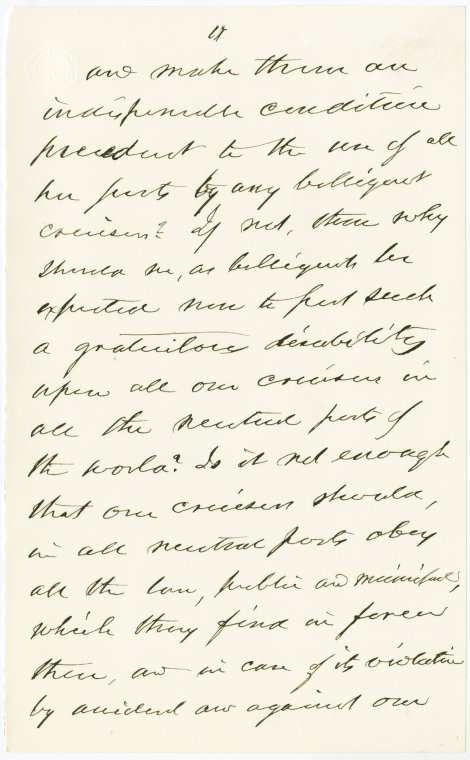 and make them an
indispensable condition
precedent to the use of all
her ports by any belligerent
cruisers? If not, then why
should we, as belligerents be
expected now to put such
a gratuitous disability
upon all our cruisers in
all the neutral ports of
the world? Is it not enough
that our cruisers should,
in all neutral ports obey
all the law, public and municipal,
which they find in force
there, and in case of its violation
by accident and against our